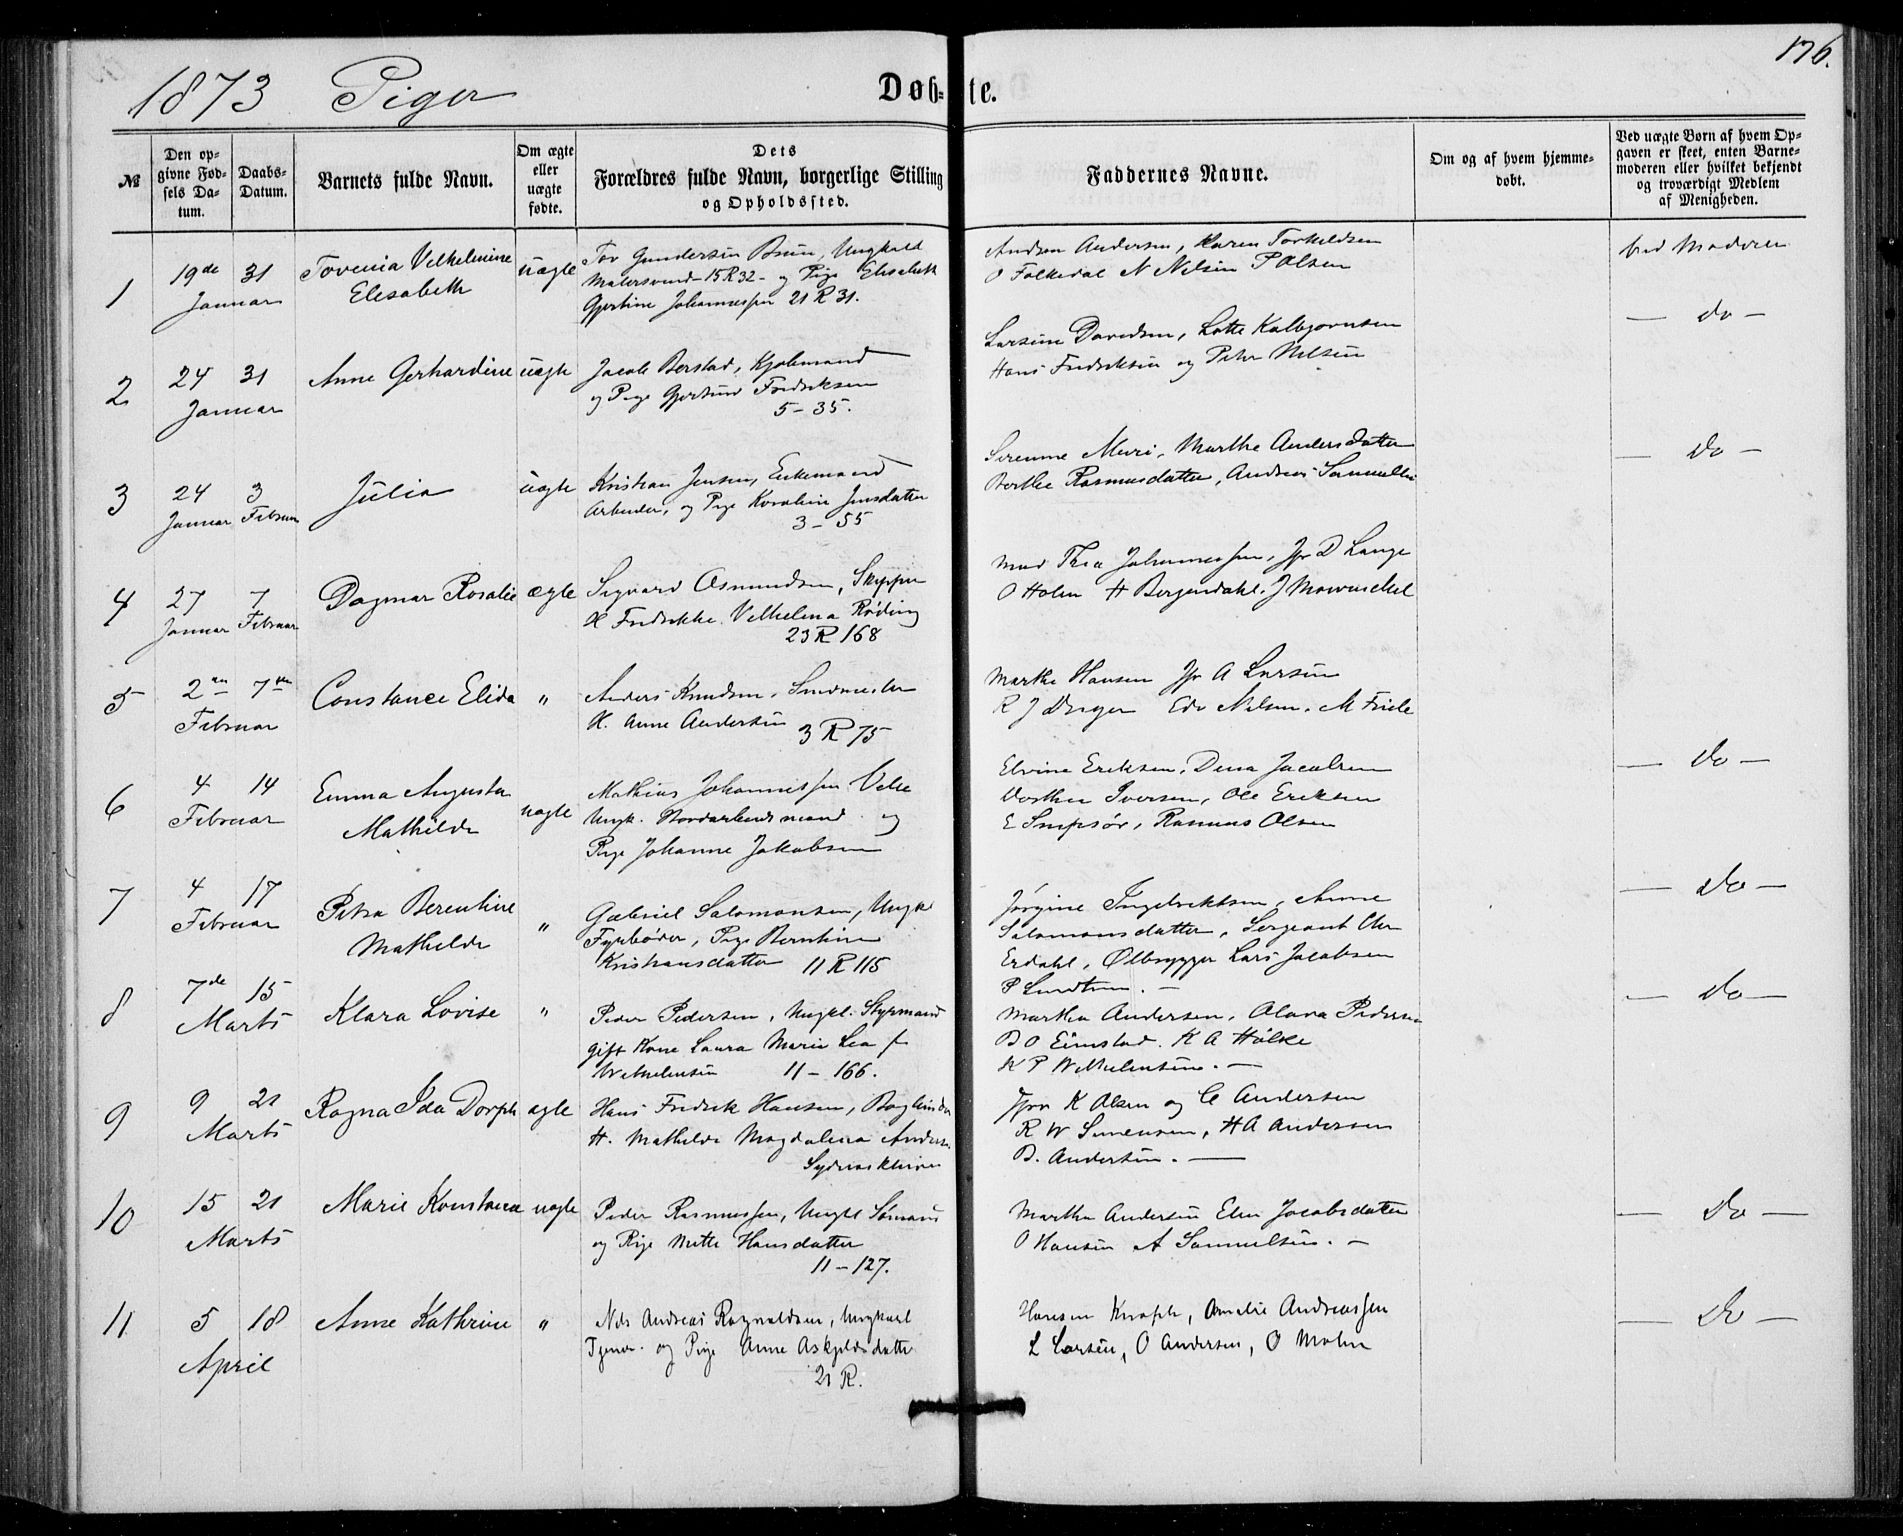 176.
1873 Piger
Døb- te.
№
Den op-
givne Fød-
sels Da-
tum.
Daabs-
Datum.
Barnets fulde Navn.
Om ægte
eller
uægte
fødte.
Dets
Forældres fulde Navn, borgerlige Stilling
og Opholdssted.
Faddernes Navne.
Om og af hvem hjemme-
døbt.
Ved uægte Børn af hvem Op-
gaven er skeet, enten Barne-
moderen eller hvilket bekjendt
og troværdigt Medlem
af Menigheden.
1
19de Januar
31
Tovenia Vilhelmine
Elisabeth
uægte
Tor Gundersen Bruu, Ungkarl
15 R 32 - og Pige Elisabeth
Gjertine Johannessen 21 R 31.
Andrea Andersen, Karen Torkildsen
O Folkedal N Nilsen P Olsen
ved Moderen
2
24 Januar
31
Anne Gerhardine
uægte
Jacob Berstad, Kjøbmand
og Pige Gjertine Fredriksen
5 - 35.
Larsine Davidsen, Lotte Kolbjørnsen
Hans Fredriksen og Peter Nilsen
— do —
3
24 Januar
3 Februar
Julia
uægte
Kristian Jensen, Enkemand
Arbeider, og Pige Karoline Jensdatter
3 - 55
Marthe Andersdatter
Berthe Rasmusdatter, Andreas Samuelsen
— do —
4
27 Januar
7 Februar
Dagmar Rosalie
ægte
Sigvard Osmundsen, Skipper
H Fredrikke Vilhelmina Røding
23 R 168
Mad Thea Johannessen, Jfr D Lange
O Holm H Bergendahl. J
5
2en Februar
7de
Constance Elida
"
Anders Knudsen, Smedmester
H. Anne Andersen
3 R 75
Marthe Hansen Jfr A Larsen
R J Edv Nilsen. M
6
4 Februar
14
Emma Augusta
Mathilde
uægte
Mathias Johannessen
Ungk. og
Pige Johanne Jakobsen
Elvine Eriksen, Dina Jacobsen
Dorthea Iversen, Ole Eriksen
E Rasmus Olsen
— do —
7
4 Februar
17
Petra Berentine
Mathilde
"
Gabriel Salomonsen, Ungk
Fyrbøder, Pige Berntine
Kristiansdatter 11 R 115
Jørgine Ingebrektsen, Anne
Salomonsdatter, Sergeant Chr
Erdahl, Ølbrygger Lars Jacobsen
P
— do —
8
7de Marts
15
Klara Lovise
"
Peder Pedersen, Ungkl. Styrmand
gift Kone Laura Marie Lea f
Wilhelmsen 11 - 166.
Martha Andersen, Olava Pedersen
B O Eimstad. K A
K P Wilhelmsen. —
— do —
9
9 Marts
21
Ragna Ida Dorph
ægte
Hans Fredrik Hansen, Bogbinder
H. Mathilde Magdalena Anders.
Jfrr K Olsen og C Andersen
R W H A Andersen
B. Andersen. —
10
15 Marts
21
Marie Konstance
uægte
Peder Rasmussen, Ungkl Sømand
og Pige Mette Hansdatter
11 - 127.
Martha Andersen Elen Jacobsdatter
O Hansen A Samuelsen. —
— do —
11
5 April
18
Anne Kathrine
"
Nils Andreas Ragnvaldsen, Ungkarl
Tjener. og Pige Anne Askjeldsdatter
21 R.
Hansen Knoph, Amelie Andreassen
L Larsen, O Andersen, O Malm
— do —